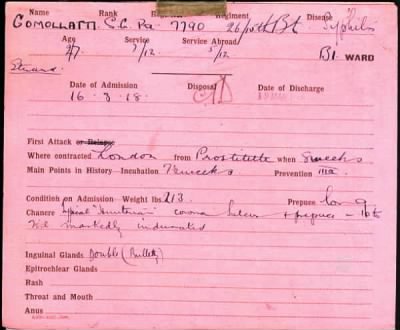 Name Rank Regiment Disease
GOMOLLATTI. S.G. Pte 7790 26/10th Bt Syphilis
Age Service Service Abroad
27 7/12. 5/12 B1 WARD
Strand.
Date of Admission Disposal Date of Discharge
16 - 3 - 18. CD
First Attack or Relapse
Where contracted London from Prostitute when 8 weeks
Main Points in History—Incubation 7 weeks Prevention
Condition on Admission—Weight lbs 213 Prepuce long
Chancre typical "Hunterian" corona + prepuce
markedly indurated
Inguinal Glands Double (Bullety)
Epitrochlear Glands
Rash
Throat and Mouth
Anus